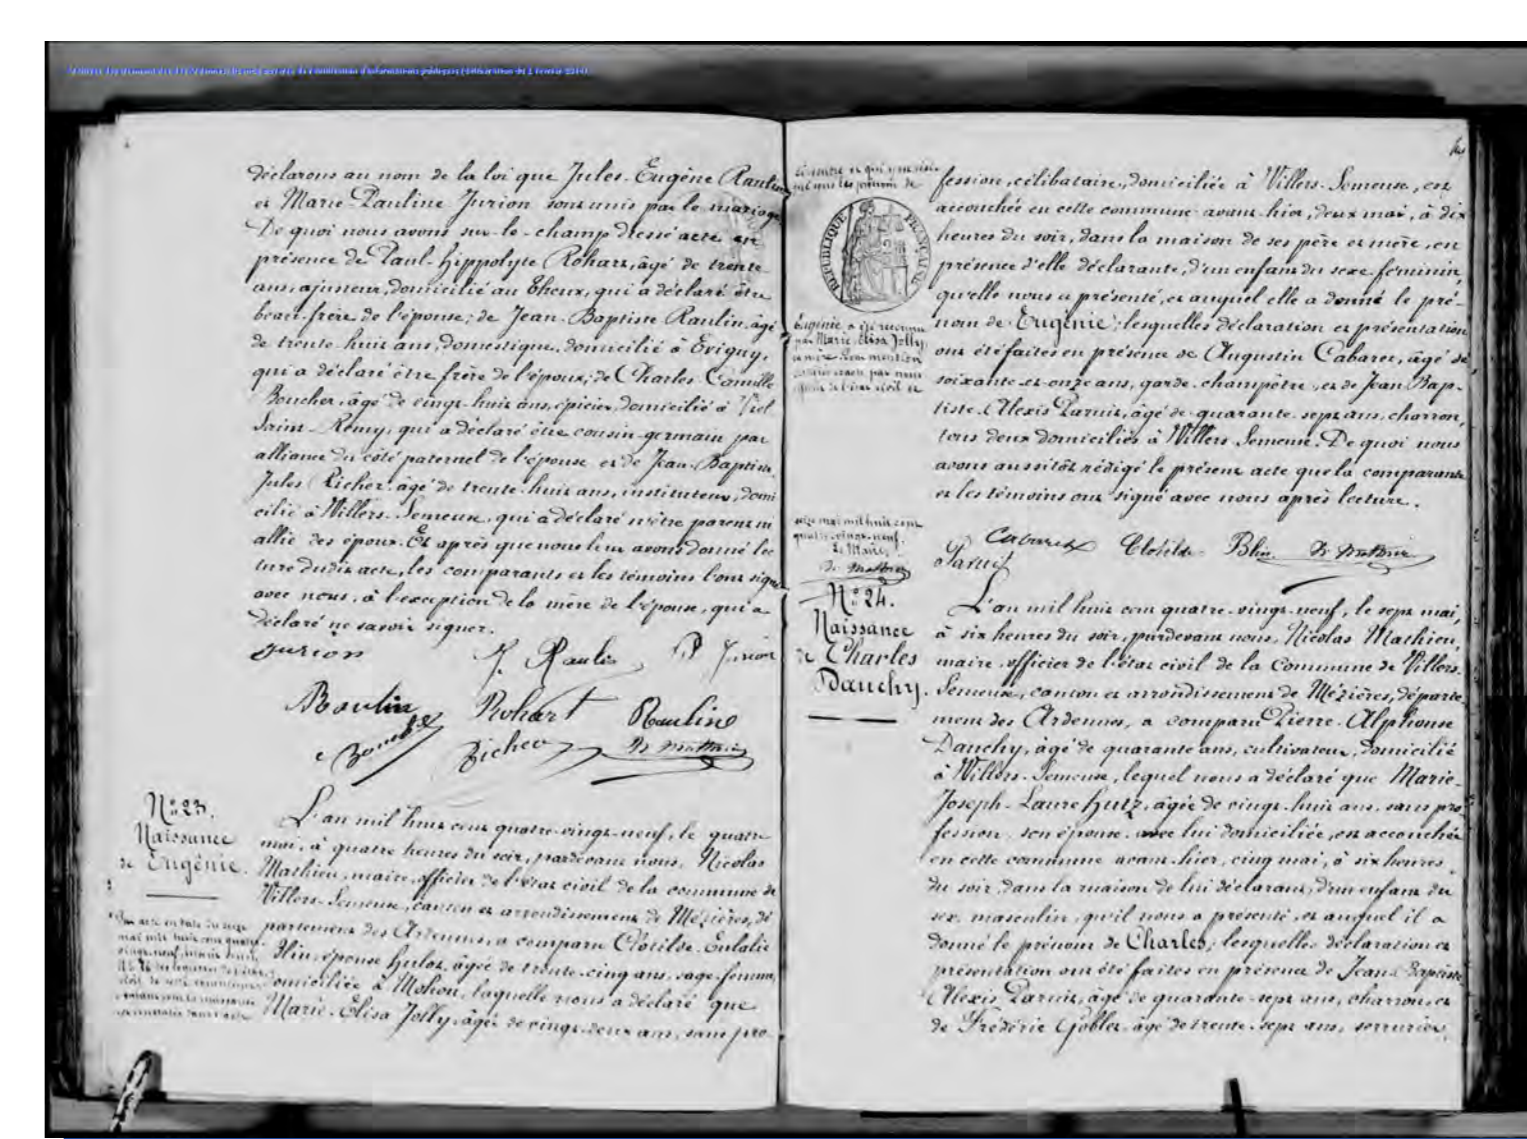 déclarons au nom de la loi que Jules-Eugène Raulin
et Marie-Pauline Jurion sont unis par le mariage
De quoi nous avons sur-le-champ dressé acte en
présence de Paul-Hippolyte Rohart, âgé de trente
ans, ajusteur, domicilié au Theux, qui a déclaré être
beau-frère de l'épouse; de Jean-Baptiste Raulin, âgé
de trente-huit ans, domestique, domicilié à Evigny,
qui a déclaré être frère de l'époux; de Charles-Camille
Boucher, âgé de vingt-huit ans, épicier, domicilié à Viel
Saint-Remy, qui a déclaré être cousin-germain par
alliance du côté paternel de l'épouse et de Jean-Baptiste
Jules Richer, âgé de trente-huit ans, instituteur, domi
cilié à Villers-Semeuse, qui a déclaré n'être parent ni
allié des époux. Et après que nous leur avons donné lec
ture dudit acte, les comparants et les témoins l'ont signé
avec nous, à l'exception de la mère de l'épouse, qui a
déclaré ne savoir signer.
Jurion J. Raulin P Jurion
Raulin Rohart Rauline
Boucher Richer N. Mathieu
N° 23.
Naissance
de Eugénie.
L'an mil huit cent quatre-vingt-neuf, le quatre
mai, à quatre heures du soir, pardevant nous, Nicolas
Mathieu, maire, officier de l'état civil de la commune de
Villers-Semeuse, canton et arrondissement de Mézières, dé
partement des Ardennes, a comparu Clotilde-Eulalie
Blin, épouse Hulot, âgée de trente-cinq ans, sage-femme,
domiciliée à Mohon, laquelle nous a déclaré que
Marie-Elisa Jolly, âgée de vingt-deux ans, sans pro-
Par acte en date du seize
mai mil huit cent quatre
vingt-neuf, inscrit
contre et qui y est dési
gné sous les prénom de
RÉPUBLIQUE FRANÇAISE
Eugénie a été reconnue
par Marie-Elisa Jolly,
sa mère. Pour mention
par nous
officier de l'état civil le
seize mai mil huit cent
quatre-vingt-neuf.
Le Maire,
N. Mathieu
fession, célibataire, domiciliée à Villers-Semeuse, est
accouchée en cette commune avant-hier, deux mai, à dix
heures du soir, dans la maison de ses père et mère, en
présence d'elle déclarante, d'un enfant du sexe féminin,
qu'elle nous a présenté, et auquel elle a donné le pré-
nom de Eugénie; lesquelles déclaration et présentation
ont été faites en présence de Augustin Cabaret, âgé de
soixante-et-onze ans, garde-champêtre, et de Jean-Bap-
tiste-Alexis Parnit, âgé de quarante-sept ans, charron,
tous deux domiciliés à Villers-Semeuse. De quoi nous
avons aussitôt rédigé le présent acte que la comparante
et les témoins ont signé avec nous après lecture.
Cabaret Clotilde Blin N. Mathieu
Parnit
N° 24.
Naissance
de Charles
Dauchy.
L'an mil huit cent quatre-vingt-neuf, le sept mai,
à six heures du soir, pardevant nous, Nicolas Mathieu,
maire, officier de l'état civil de la Commune de Villers-
Semeuse, canton et arrondissement de Mézières, départe-
ment des Ardennes, a comparu Pierre-Alphonse
Dauchy, âgé de quarante ans, cultivateur, domicilié
à Villers-Semeuse, lequel nous a déclaré que Marie-
Joseph-Laure Hutz, âgée de vingt-huit ans, sans pro-
fession, son épouse, avec lui domiciliée, est accouchée
en cette commune avant-hier, cinq mai, à six heures
du soir, dans la maison de lui déclarant, d'un enfant du
sexe masculin, qu'il nous a présenté, et auquel il a
donné le prénom de Charles; lesquelles déclaration et
présentation ont été faites en présence de Jean-Baptiste
Alexis Parnit, âgé de quarante-sept ans, charron, et
de Frédéric Gobler, âgé de trente-sept ans, serrurier,